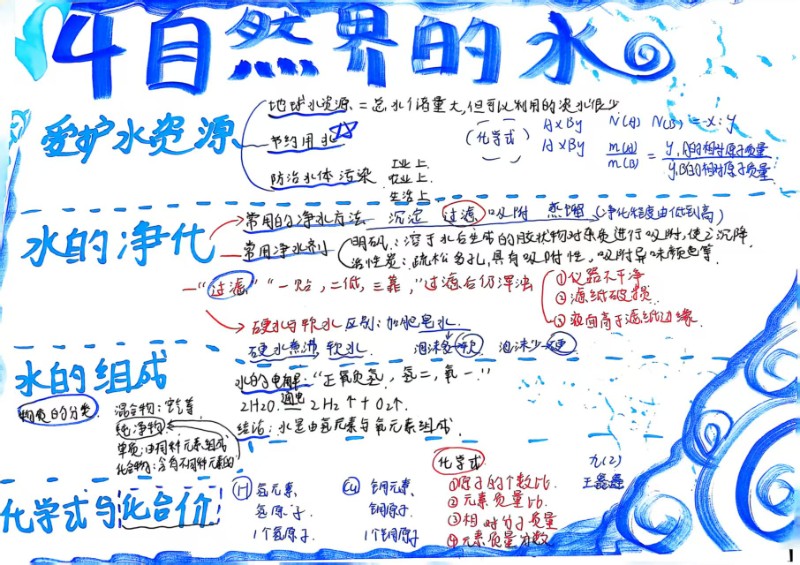 4自然界的水
爱护水资源
地球水资源 = 总水储量大,但可以利用的淡水很少
节约用水
防治水体污染
工业上
农业上
生活上
(化学式)
AxBy N(A) N(B) = x:y
AxBy
m(A)/m(B) =
水的净化
常用的净水方法 沉淀 过滤 吸附 蒸馏 (净化程度由低到高)
常用净水剂
明矾:溶于水后生成的胶状物对杂质进行吸附,使之沉降
活性炭:疏松多孔,具有吸附性,吸附异味颜色等
"过滤" "一贴,二低,三靠,"过滤后仍浑浊
①仪器不干净
②滤纸破损
③液面高于滤纸边缘
硬水与软水区别:加肥皂水
硬水煮沸,软水 泡沫多 软 泡沫少 硬
水的组成
物质的分类
混合物:空气等
纯净物
单质:由同种元素组成
化合物:含有不同种元素的
水的电解:"正氧负氢,氢二,氧一."
2H2O 通电 2H2↑+O2↑.
结论:水是由氢元素与氧元素组成.
化学式与化合价
H 氢元素,
氢原子.
1个氢原子.
Cu 铜元素,
铜原子.
1个铜原子.
化学式
①原子的个数比
②元素质量比.
③相对分子质量
④元素质量分数
九(2)